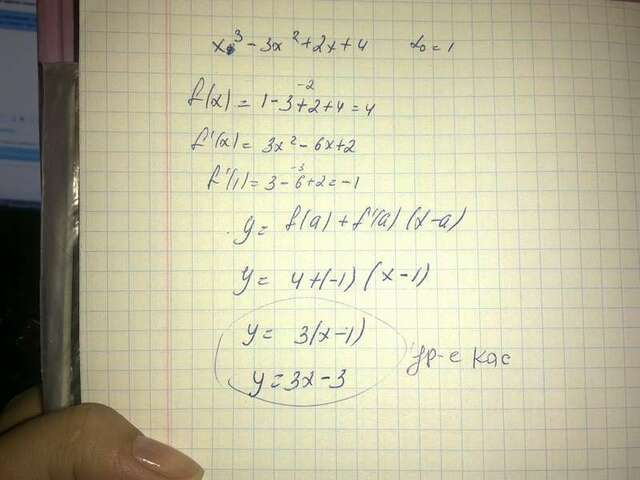 x³ - 3x² + 2x + 4 x₀ = 1
-2
f(x) = 1 - 3 + 2 + 4 = 4
f'(x) = 3x² - 6x + 2
-3
f'(1) = 3 - 6 + 2 = -1
y = f(a) + f'(a) (x - a)
y = 4 + (-1) (x - 1)
y = 3(x - 1)
y = 3x - 3
ур-е кас